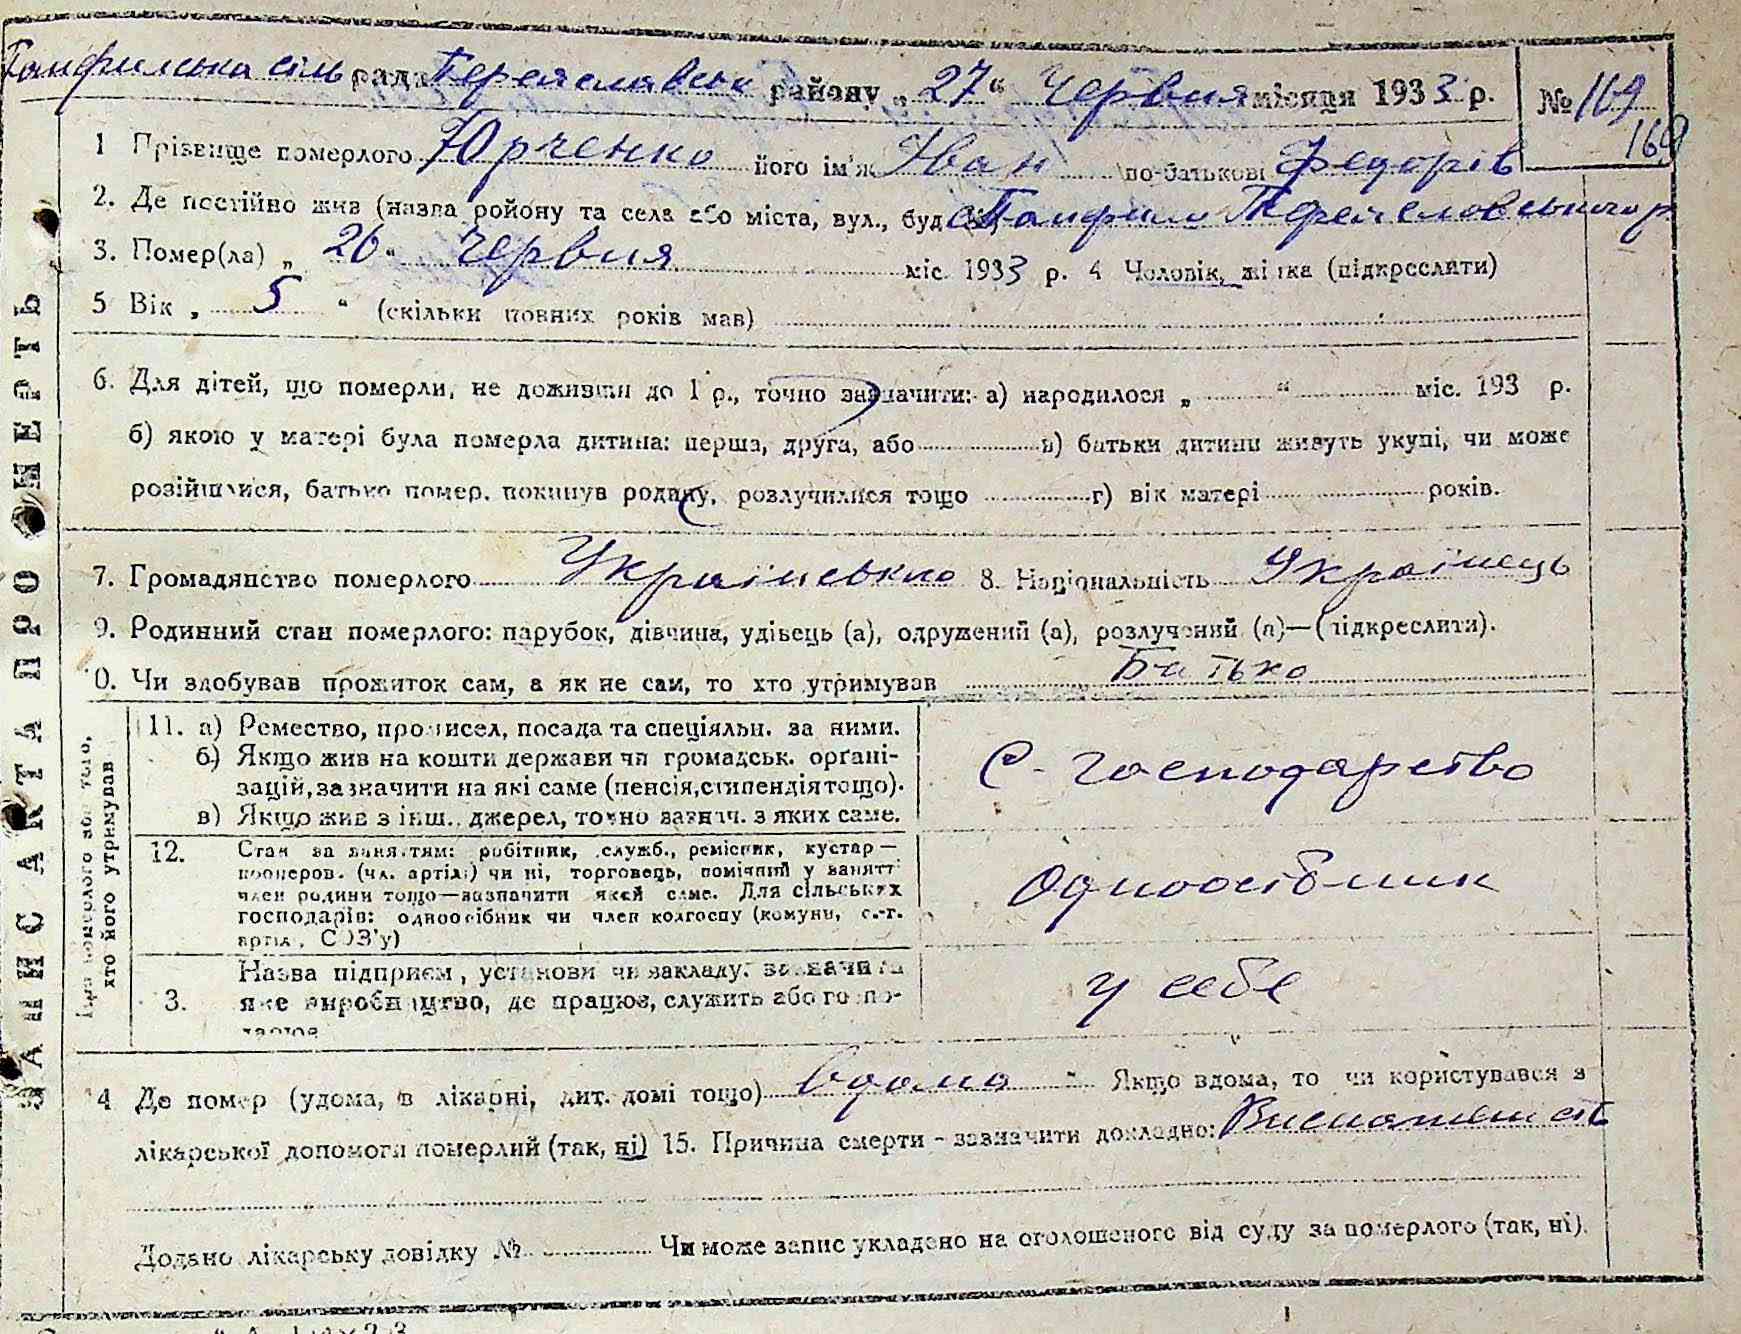 Памфилська сіль рада Переяславськ району „27“ Червня місяця 1933 р. № 169
169
1 Прізвище померлого Юрченко його ім'я Іван по-батькові Федорів
2. Де постійно жив (назва ройону та села або міста, вул., буд. с Памфили Переяславського р
3. Помер(ла) „26“ Червня міс. 1933 р. 4 Чоловік, жінка (підкреслити)
5 Вік „5“ (скільки повних років мав)
6. Для дітей, що померли, не доживши до 1 р., точно зазначити: а) народилося „ “ міс. 193 р.
б) якою у матері була померла дитина: перша, друга, або в) батьки дитини живуть укупі, чи може
розійшлися, батько помер, покинув родину, розлучилися тощо г) вік матері років.
7. Громадянство померлого Українське 8. Національність Українець
9. Родинний стан померлого: парубок, дівчина, удівець (а), одружений (а), розлучений (а)—(підкреслити).
0. Чи здобував прожиток сам, а як не сам, то хто утримував Батько
11. а) Ремество, промисел, посада та спеціяльн. за ними.
б) Якщо жив на кошти держави чи громадськ. орґані-
зацій, зазначити на які саме (пенсія, стипендія тощо).
в) Якщо жив з інш. джерел, точно зазнач. з яких саме.
С-господарство
12. Стан за заняттям: робітник, служб., ремісник, кустар—
кооперов. (чл. артілі) чи ні, торговець, помічний у занятті
член родини тощо—зазначити який саме. Для сільських
господарів: одноосібник чи член колгоспу (комуни, с.-г.
артіл., СОЗ'у)
Одноосібник
3. Назва підприєм., установи чи закладу, зазначити
яке виробництво, де працює, служить або госпо-
дарює
у себе
4 Де помер (удома, в лікарні, дит. домі тощо) вдома Якщо вдома, то чи користувався з
лікарської допомоги померлий (так, ні) 15. Причина смерти - зазначити докладно: Виснаженість
Додано лікарську довідку № Чи може запис укладено на оголошеного від суду за померлого (так, ні).
ЗАПИС АКТА ПРО СМЕРТЬ
Про померлого або того,
хто його утримував